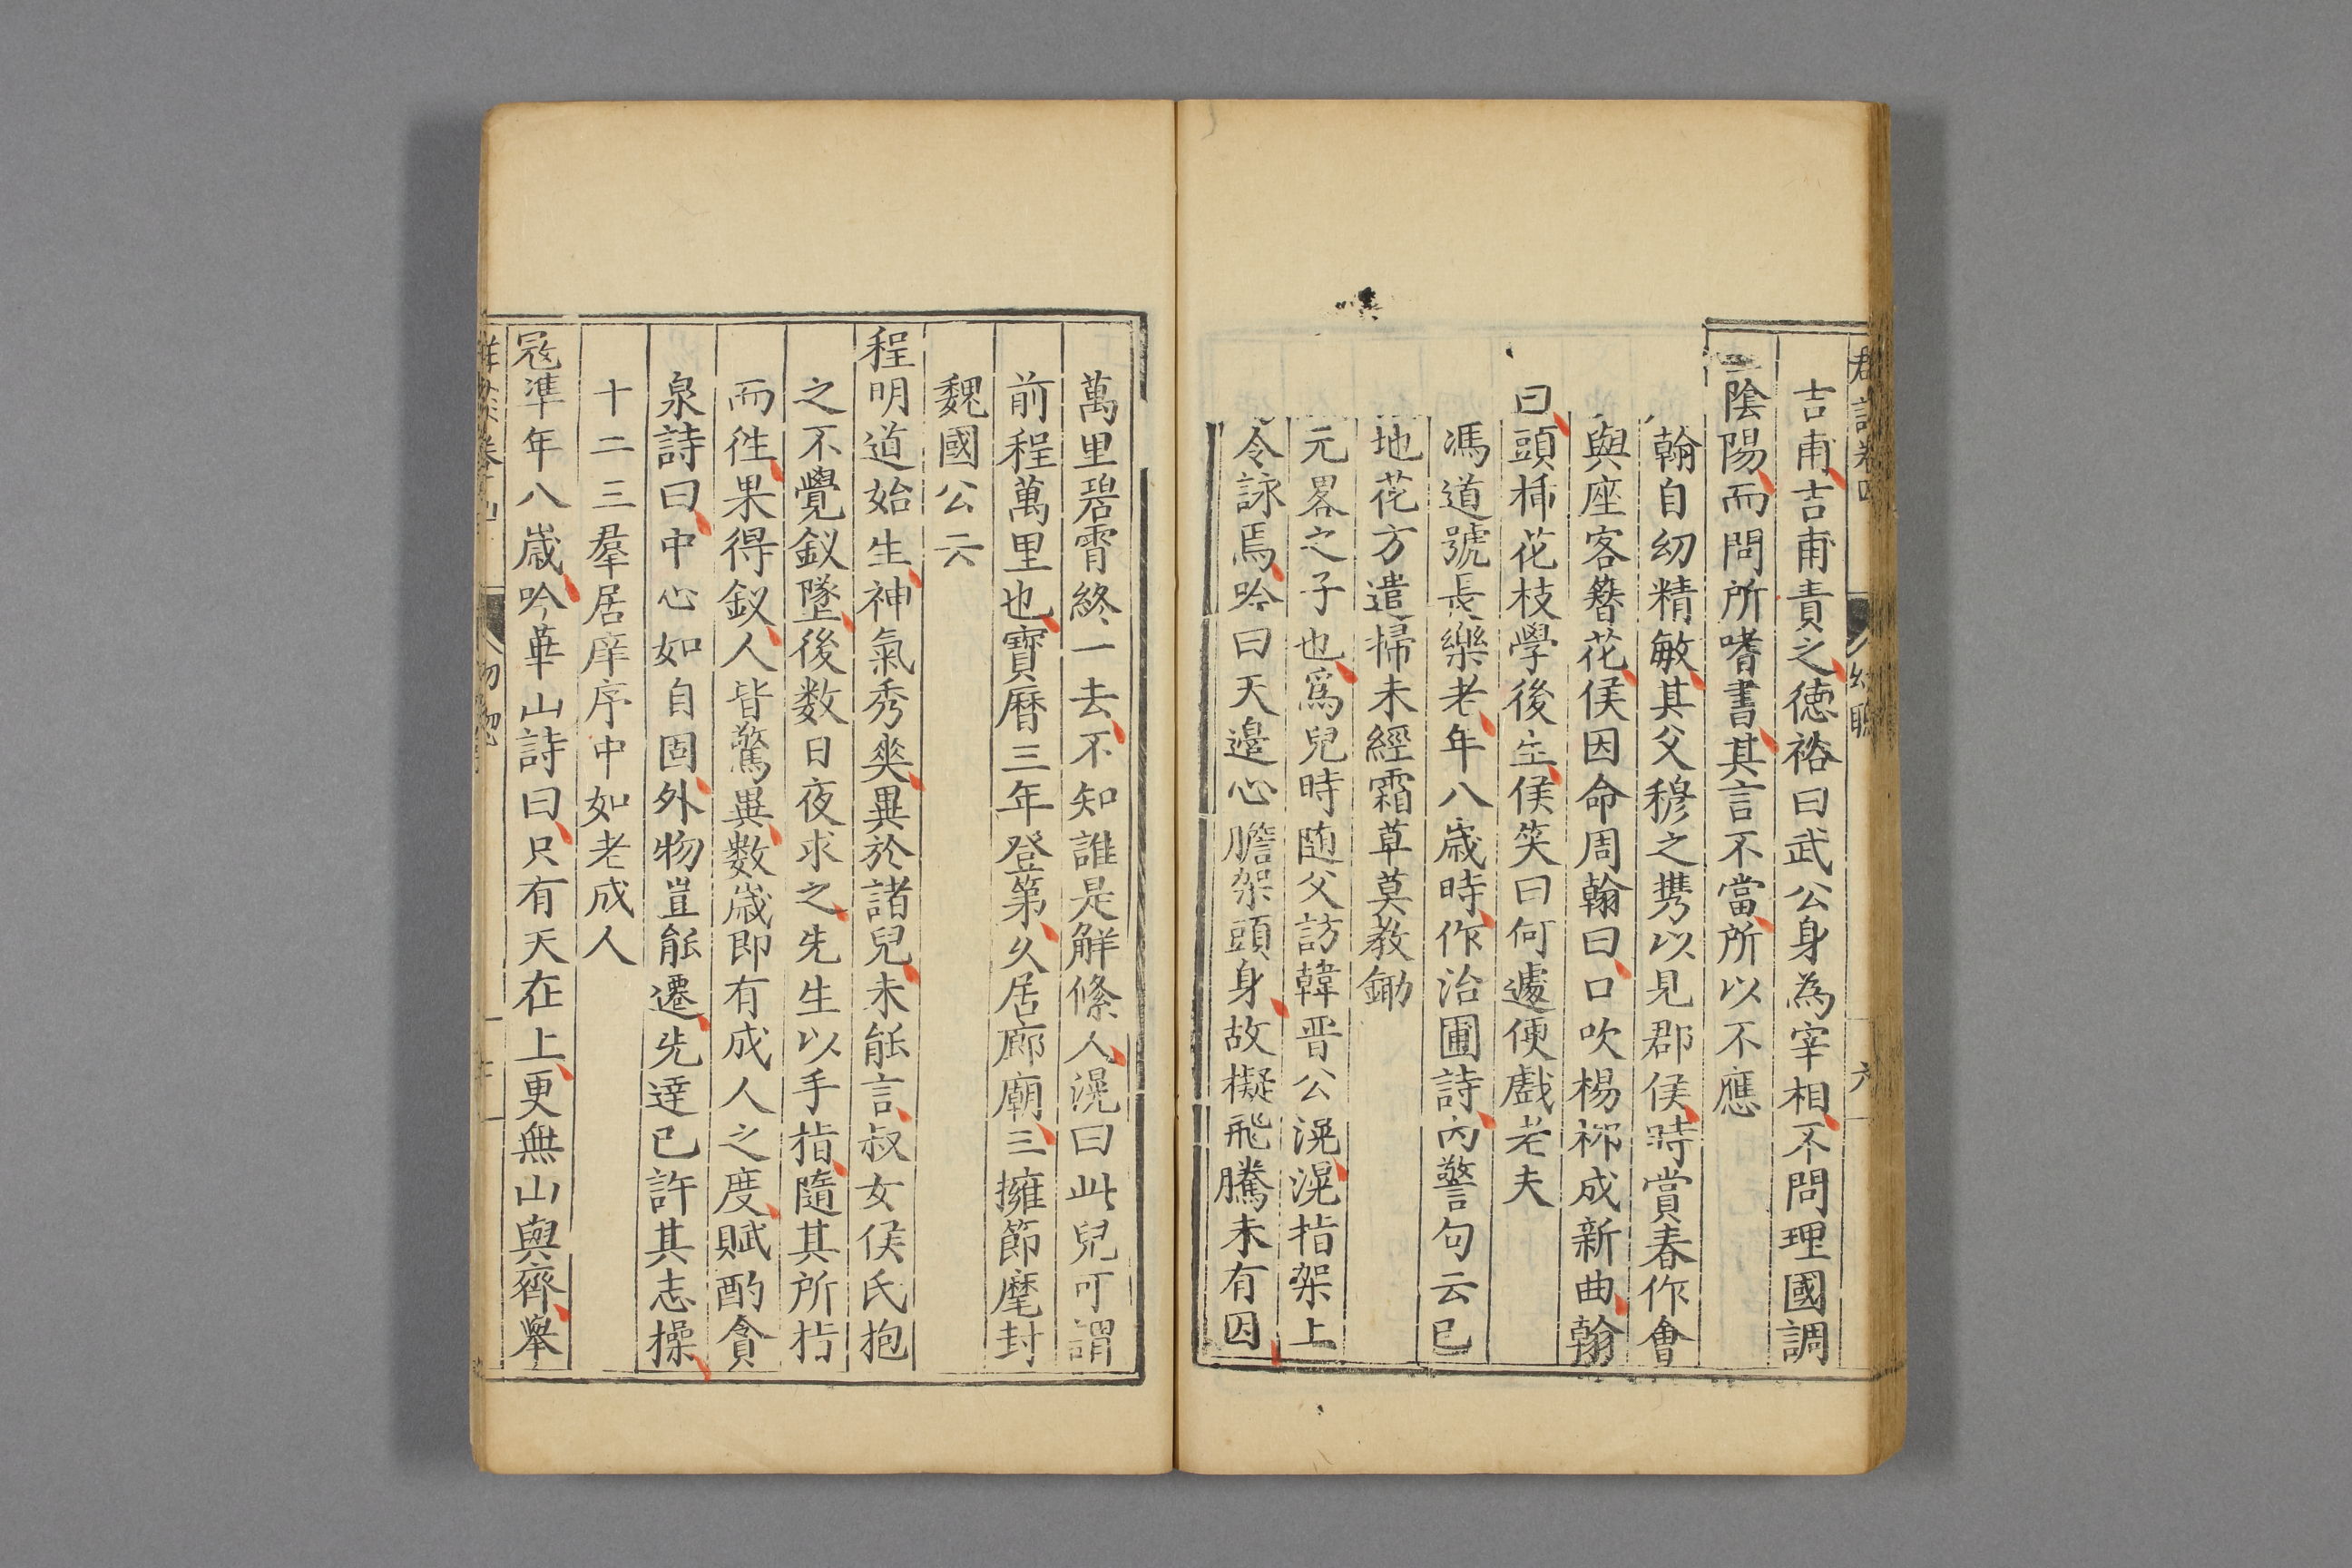 吉甫吉甫責之德裕曰武公身為宰相不問理國調
陰陽而問所嗜書其言不當所以不應
翰自幼精敏其父穆之携以見郡侯時賞春作會
與座客簪花侯因命周翰曰口吹楊柳成新曲翰
曰頭揷花枝學後生侯笑曰何遽便戲老夫
馮道號長樂老年八歲時作治圃詩內警句云已
地花方遣掃未經霜草莫教鋤
元畧之子也爲兒時随父訪韓晋公滉滉指架上
令詠焉吟曰天邊心膽架頭身故擬飛騰未有因
萬里碧霄終一去不知誰是解絛人滉曰此兒可謂
前程萬里也寶曆三年登第久居廊廟三擁節麾封
魏國公云
程明道始生神氣秀爽異於諸兒未能言叔女侯氏抱
之不覺釵墜後数日夜求之先生以手指隨其所指
而徃果得釵人皆驚異數歲即有成人之度賦酌貪
泉詩曰中心如自固外物豈能遷先達已許其志操
十二三羣居庠序中如老成人
冦準年八歲吟華山詩曰只有天在上更無山與齊舉